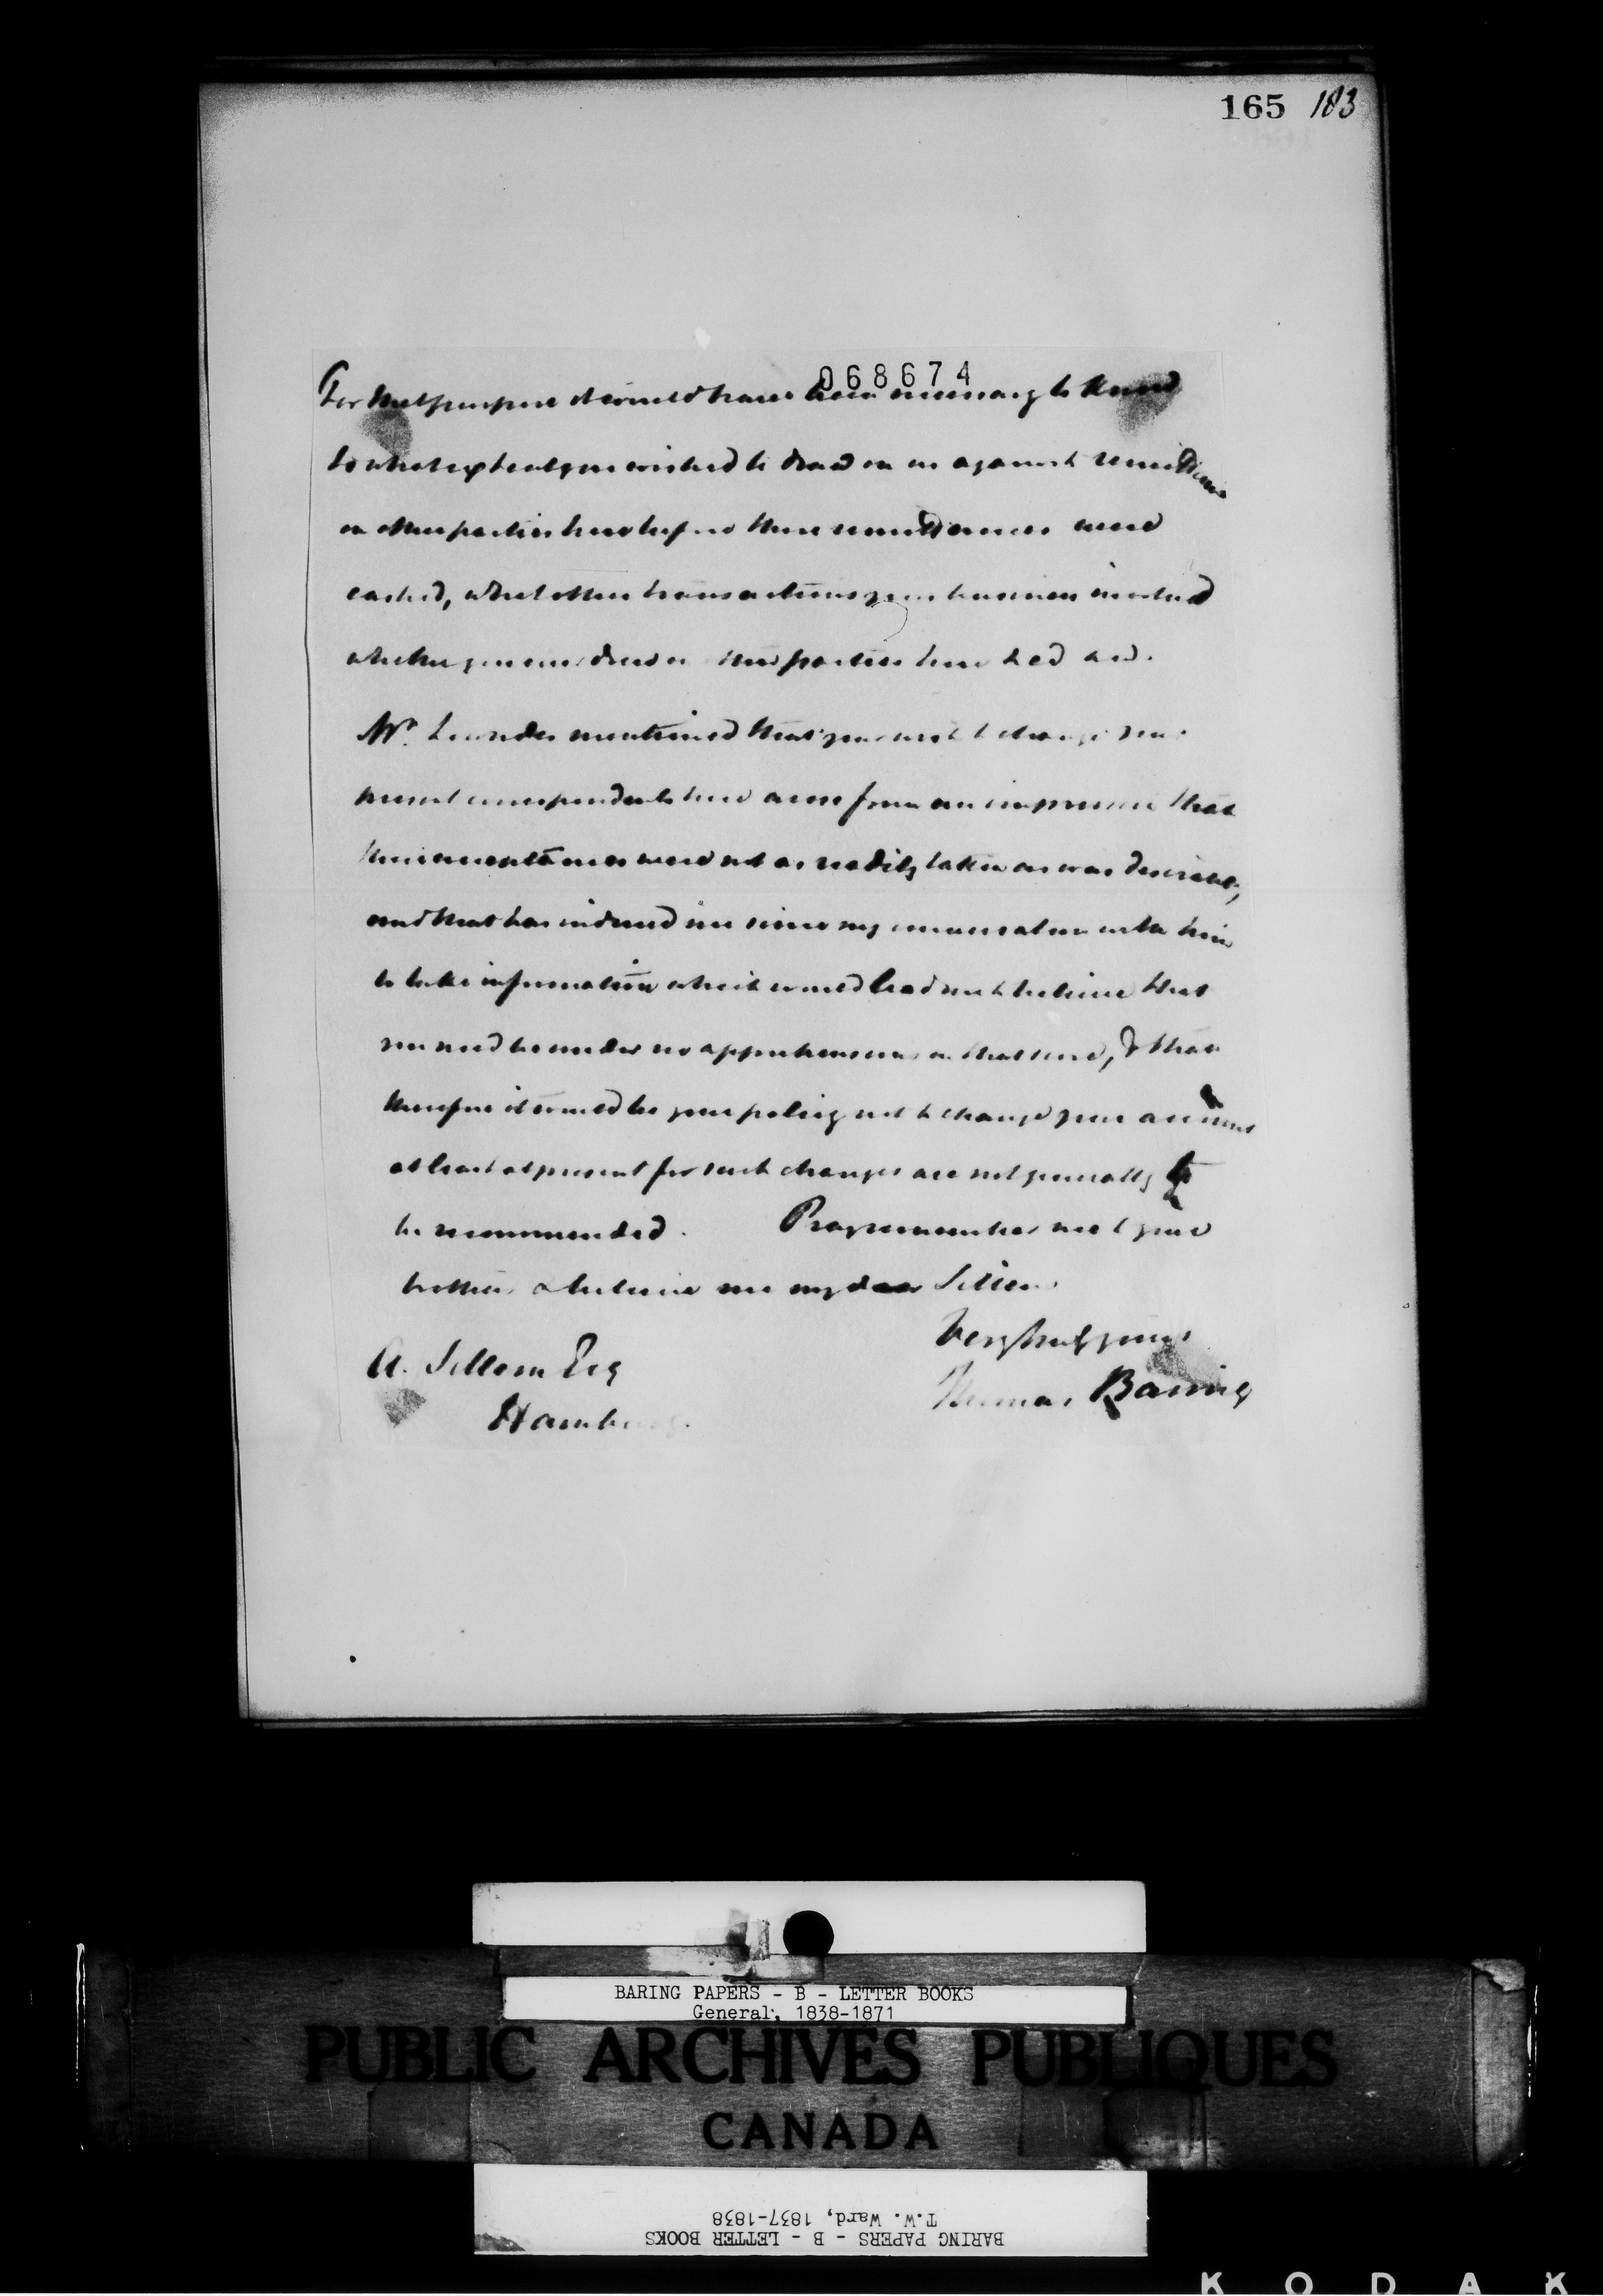 165 183
068674
For that purpose it would have been necessary to know
to what extent you wished to draw on us against remittances
on other parties here before these remittances were
cashed, what other transactions your business involved
whether you ever drew on other parties here &c &c.
Mr. mentioned that your wish to change your
present correspondents here arose from an impression that
their acceptances were not as readily taken as was desirable,
and that has induced me since my conversation with him
to take information which would lead me to believe that
you need be under no apprehensions on that score, & that
therefore it would be your policy not to change your account
at least at present for such changes are not generally to
be recommended. Pray remember me to your
brother & believe me my dear Sillem
Very truly yours
A. Sillem Esq
Thomas Baring
Hamburg.
BARING PAPERS - B - LETTER BOOKS
General, 1838-1871
PUBLIC ARCHIVES PUBLIQUES
CANADA
T.W. Ward, 1837-1838
BARING PAPERS - B - LETTER BOOKS
KODAK